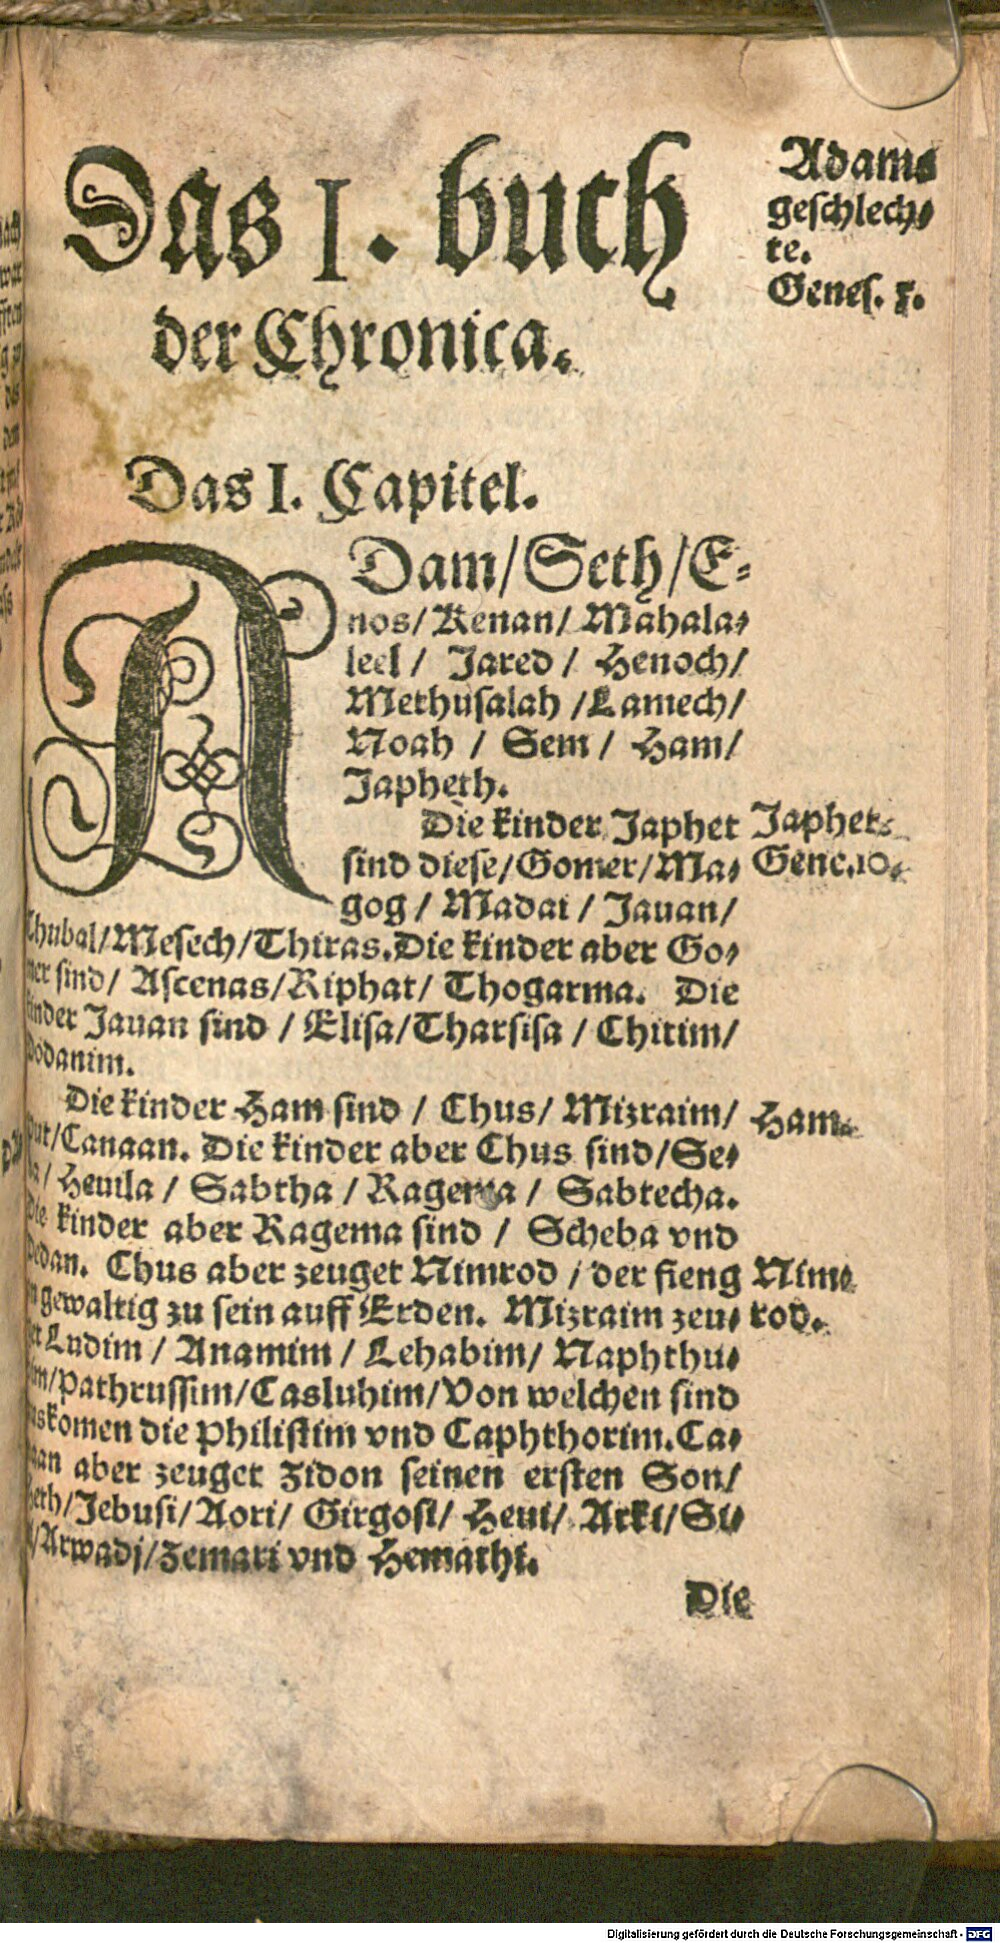 Das I. buch
der Chronica.
Adams
geschlech⸗
te.
Genes. 5.
Das I. Capitel.
ADam/Seth/E⸗
nos/Kenan/Mahala⸗
leel/ Jared/ Henoch/
Methusalah/Lamech/
Noah/ Sem/ Ham/
Japheth.
Die kinder Japhet
Japhet.
sind diese/Gomer/Ma⸗
Gene.10.
gog/ Madai/ Jauan/
Thubal/Mesech/Thiras.Die kinder aber Go⸗
mer sind/ Ascenas/Riphat/ Thogarma. Die
kinder Jauan sind/ Elisa/Tharsisa/ Chitim/
Dodanim.
Die kinder Ham sind/ Chus/ Mizraim/
Ham.
Put/Canaan. Die kinder aber Chus sind/Se⸗
ba/ Heuila/ Sabtha/ Ragema/ Sabtecha.
Die kinder aber Ragema sind/ Scheba vnd
Dedan. Chus aber zeuget Nimrod/ der fieng
Nim⸗
an gewaltig zu sein auff Erden. Mizraim zeu⸗
rod.
get Ludim/ Anamim/ Lehabim/ Naphthu⸗
him/Pathrussim/Casluhim/Von welchen sind
auskomen die Philistim vnd Caphthorim.Ca⸗
naan aber zeuget Zidon seinen ersten Son/
Heth/Jebusi/Aori/ Girgosi/ Heui/ Arki/Si⸗
ni/Arwadi/Zemari vnd Hemathi.
Die
Digitalisierung gefördert durch die Deutsche Forschungsgemeinschaft - DFG